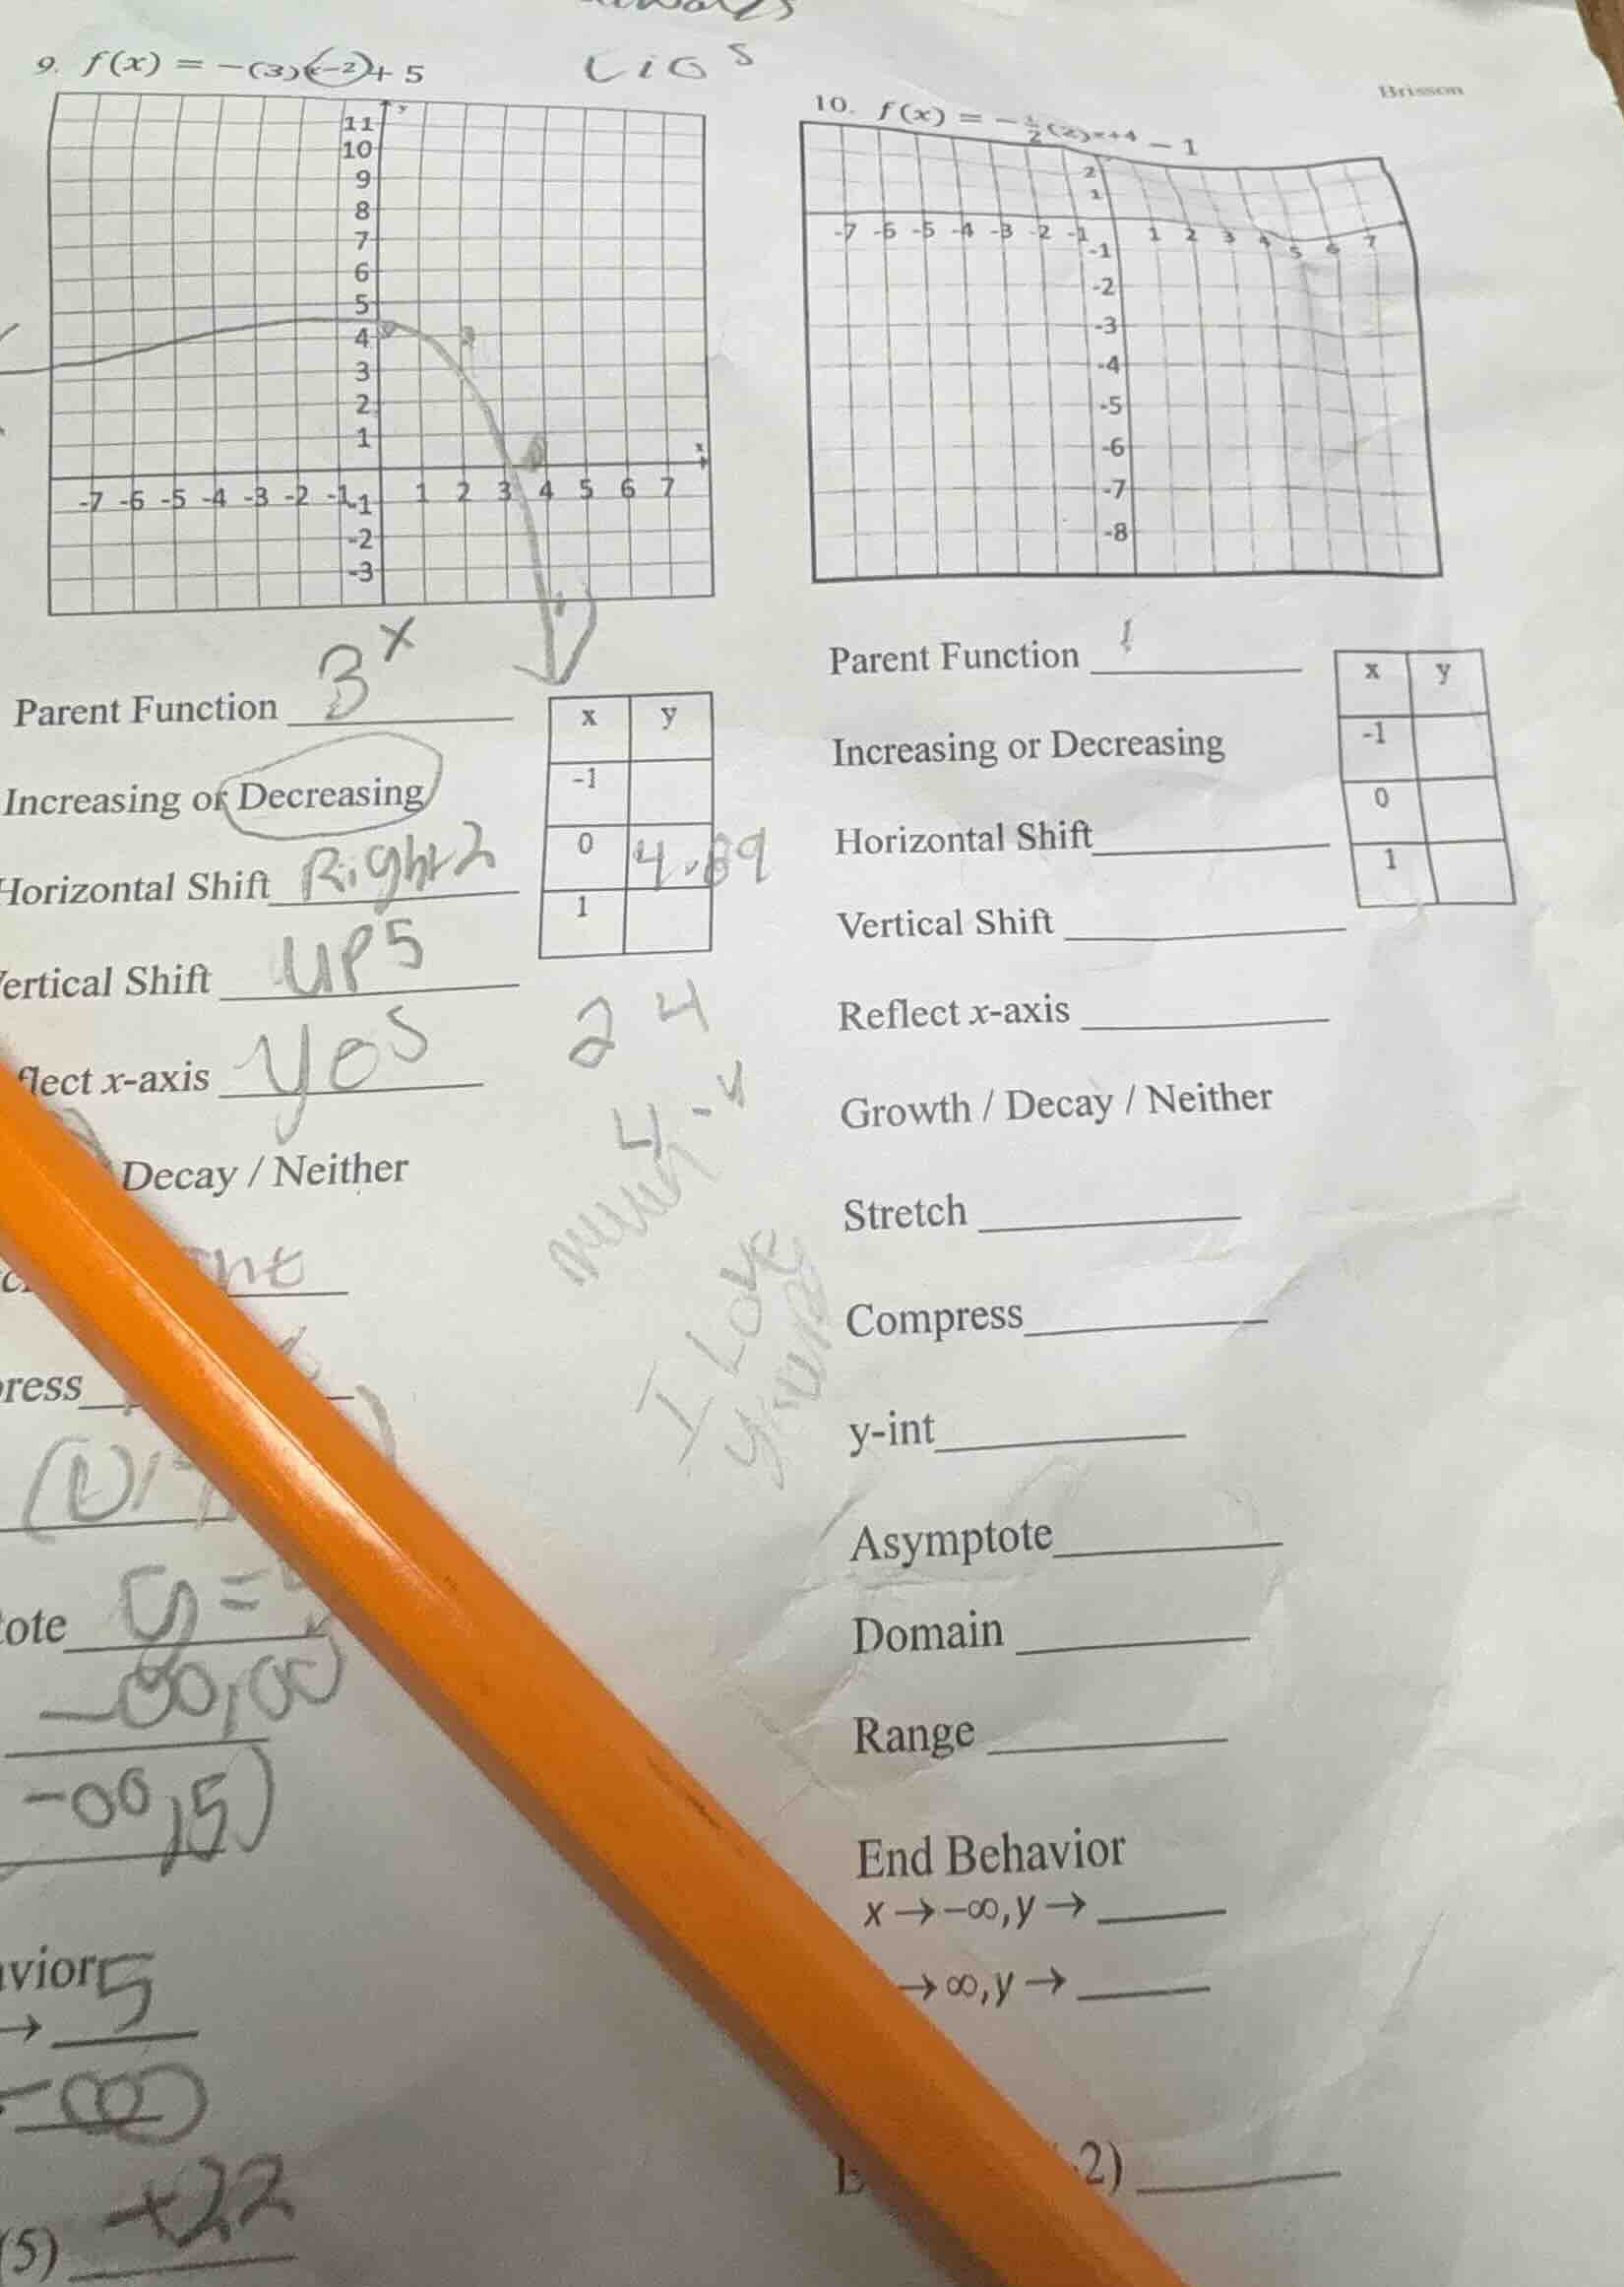 9. f(x) = -(3)x-2 + 5
Brisson
10. f(x) = -1/2(2)x+4 - 1
y
11
10
9
8
7
6
5
4
3
2
1
x
-7 -6 -5 -4 -3 -2 -1 1 2 3 4 5 6 7
-1
-2
-3
2
1
-7 -6 -5 -4 -3 -2 -1 1 2 3 4 5 6 7
-1
-2
-3
-4
-5
-6
-7
-8
Parent Function 3^x
x y
-1
0 4.89
1
Increasing or Decreasing
Horizontal Shift Right 2
ertical Shift UP 5
flect x-axis yes
2 4
4
Decay / Neither
I Love
ress
ote y =
-∞,∞
-∞,5)
vior
→ 5
-∞
(5) +22
Parent Function
x y
-1
0
1
Increasing or Decreasing
Horizontal Shift
Vertical Shift
Reflect x-axis
Growth / Decay / Neither
Stretch
Compress
y-int
Asymptote
Domain
Range
End Behavior
x → -∞, y →
→ ∞, y →
2)